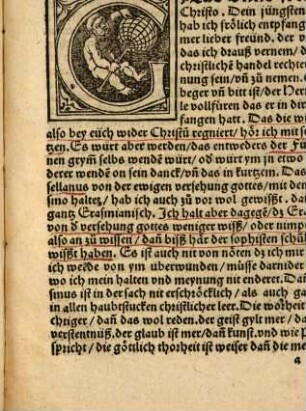 Christo. Dein jüngsten
hab ich frölich entpfang
mer lieber freund. der v
das ich drauß vernem / d
christlichē handel rechte
nung sein / vn̄ zu nemen. G
beger vn̄ bitt ist / der Her
le vollfüren das er in dir
fangen hatt. Das die w
also bey eüch wider Christū regniert / hör ich mit h
tzen. Es würt aber werden / das entweders der Fü
nen grym̄ selbs wende würt / od würt ym in etwed
derer wende on sein danck / vn̄ das in kurtzem. Das
sellanus von der ewigen versehung gottes / mit der
simo haltez / hab ich auch zů vor wol gewißt. da
gantz Erasmianisch. Ich halt aber dagegē / dz Er
von d versehung gottes weniger wiß / oder nimp
also an zů wissen / dan̄ biß har der sophisten schůl
wißt haben. Es ist auch nit von nöten dz ich mit
ich welde von ym überwunden / müsse darnider
wo ich mein halten vnd meynung nit enderet. Da
smus ist in der sach nit erschröcklich / als auch ga
in allen haubtstucken christlicher leer. Die worheit
chtiger / dan̄ das wol reden. der geist gylt mer / da
verstentnüß. der glaub ist mer / dan̄ kunst. vnd wie P
spricht / die göttlich thorheit ist weiser dan̄ die me